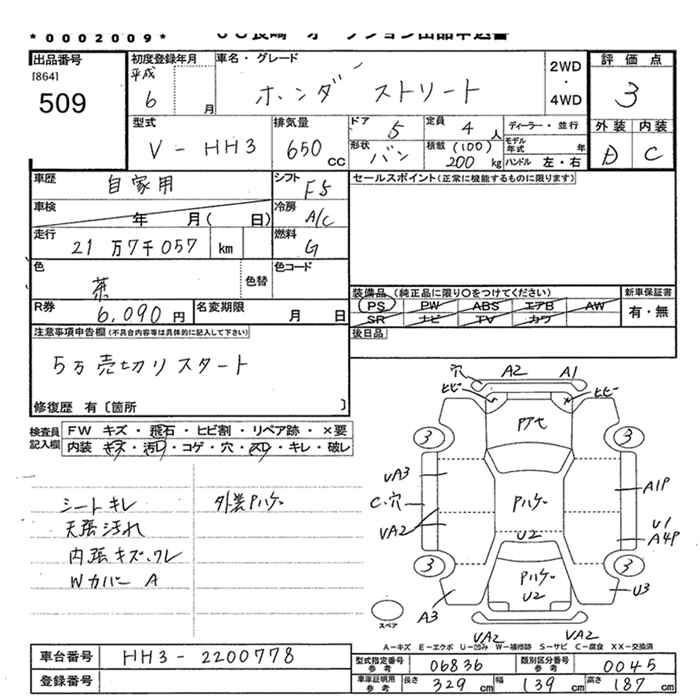 *0002009*
出品番号
[864]
509
初度登録年月
平成
6 月
車名・グレード
ホンダ ストリート
2WD
・
4WD
評価点
3
外装 内装
D C
型式
V-HH3
排気量
650 CC
ドア 5
定員 4 人
形状 バン
積載 (100)
200 kg
ディーラー・並行
モデル年式 年
ハンドル 左・右
車歴
自家用
シフト F5
車検
年 月( 日)
冷房 A/C
走行
21万7千057 km
燃料 G
色
茶
色替
色コード
R券
6,090円
名変期限
月 日
セールスポイント(正常に機能するものに限ります)
装備品(純正品に限り○をつけてください)
PS PW ABS エアB AW
SR ナビ TV カワ
新車保証書
有・無
後日品
注意事項申告欄(不具合内容等は具体的に記入して下さい)
5万売切りスタート
修復歴 有〔箇所 〕
検査員記入欄
FW キズ・飛石・ヒビ割・リペア跡・×要
内装 キズ・汚れ・コゲ・穴・スレ・キレ・破レ
シートキレ
天張汚れ
内張キズ、ワレ
Wカバー A
外装Pハゲ
穴 A2 A1
ヒビ ヒビ
3 3
Pアセ
UA3
A1P
C・穴
Pハゲ
UA2
U1
A4P
U2
3 3
Pハゲ
U2
A3
U3
UA2 UA2
スペア
A-キズ E-エクボ U-凹み W-補修跡 S-サビ C-腐食 XX-交換済
車台番号
HH3-2200778
登録番号
型式指定番号 参考
06836
類別区分番号 参考
0045
車庫証明用 参考
長さ 329 cm
幅 139 cm
高さ 187 cm